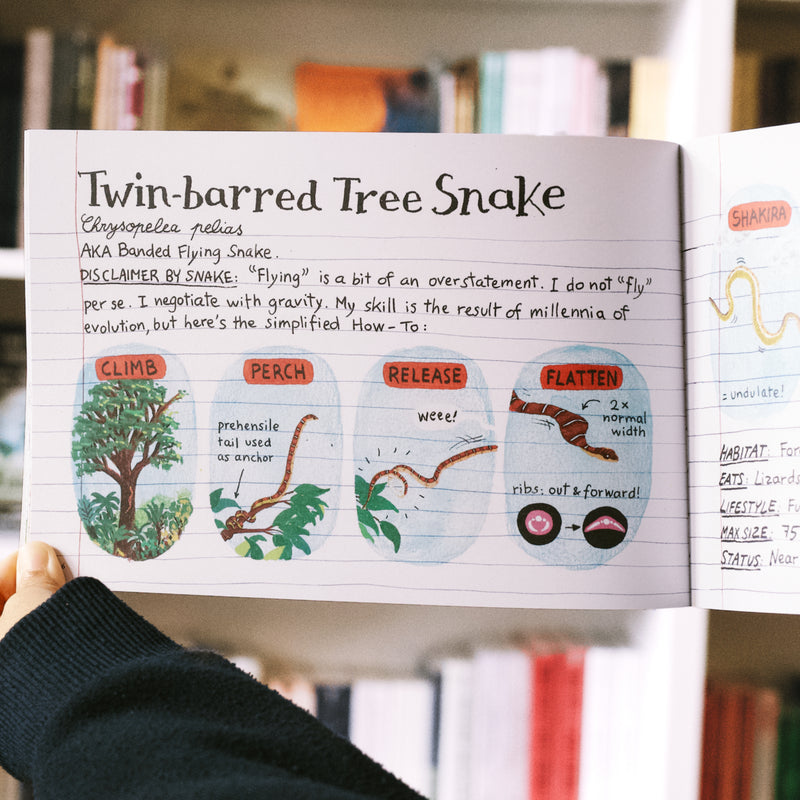 Twin-barred Tree Snake
Chrysopelea pelias
AKA Banded Flying Snake.
DISCLAIMER BY SNAKE: "Flying" is a bit of an overstatement. I do not "fly"
per se. I negotiate with gravity. My skill is the result of millennia of
evolution, but here's the simplified How-To:
CLIMB
PERCH
prehensile
tail used
as anchor
RELEASE
weee!
FLATTEN
2x
normal
width
ribs: out & forward!
SHAKIRA
= undulate!
HABITAT:
EATS: Lizards
LIFESTYLE:
MAX SIZE: 75
STATUS: Near